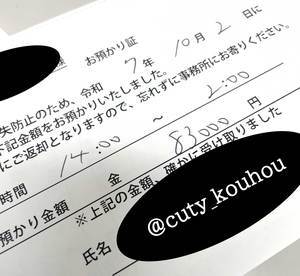 お預かり証
失防止のため、令和 7年 10月 2日に
下記金額をお預かりいたしました。
にご返却となりますので、忘れずに事務所にお寄りください。
時間 14:00 ～ 2:00
預かり金額 金 83000 円
※上記の金額、確かに受け取りました
氏名
@cuty_kouhou